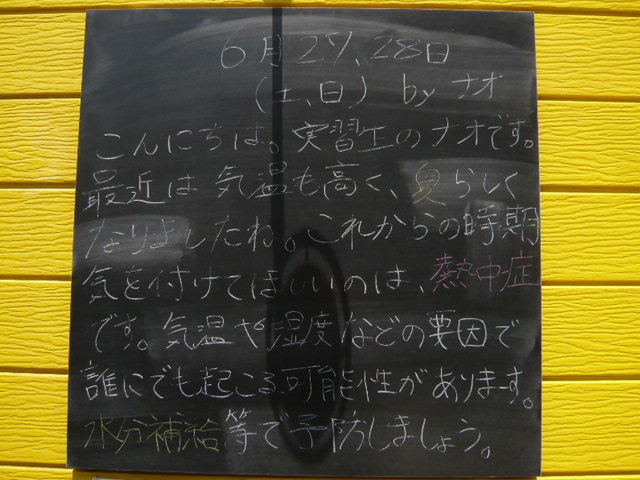 6月27、28日
(土、日) by ナオ
こんにちは。実習生のナオです。
最近は気温も高く、夏らしく
なりましたね。これからの時期
気を付けてほしいのは、熱中症
です。気温や湿度などの要因で
誰にでも起こる可能性があります。
水分補給等で予防しましょう。